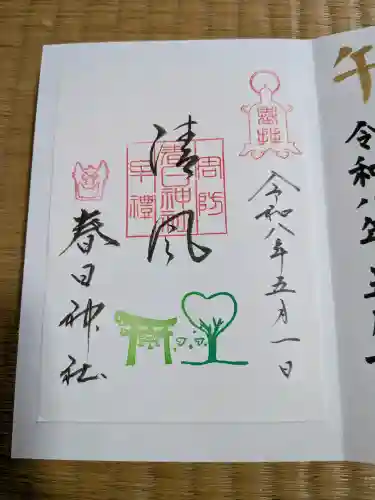 午
令和八年五月一
令和八年五月一日
清風
周防
春日神社
牟禮
春日神社